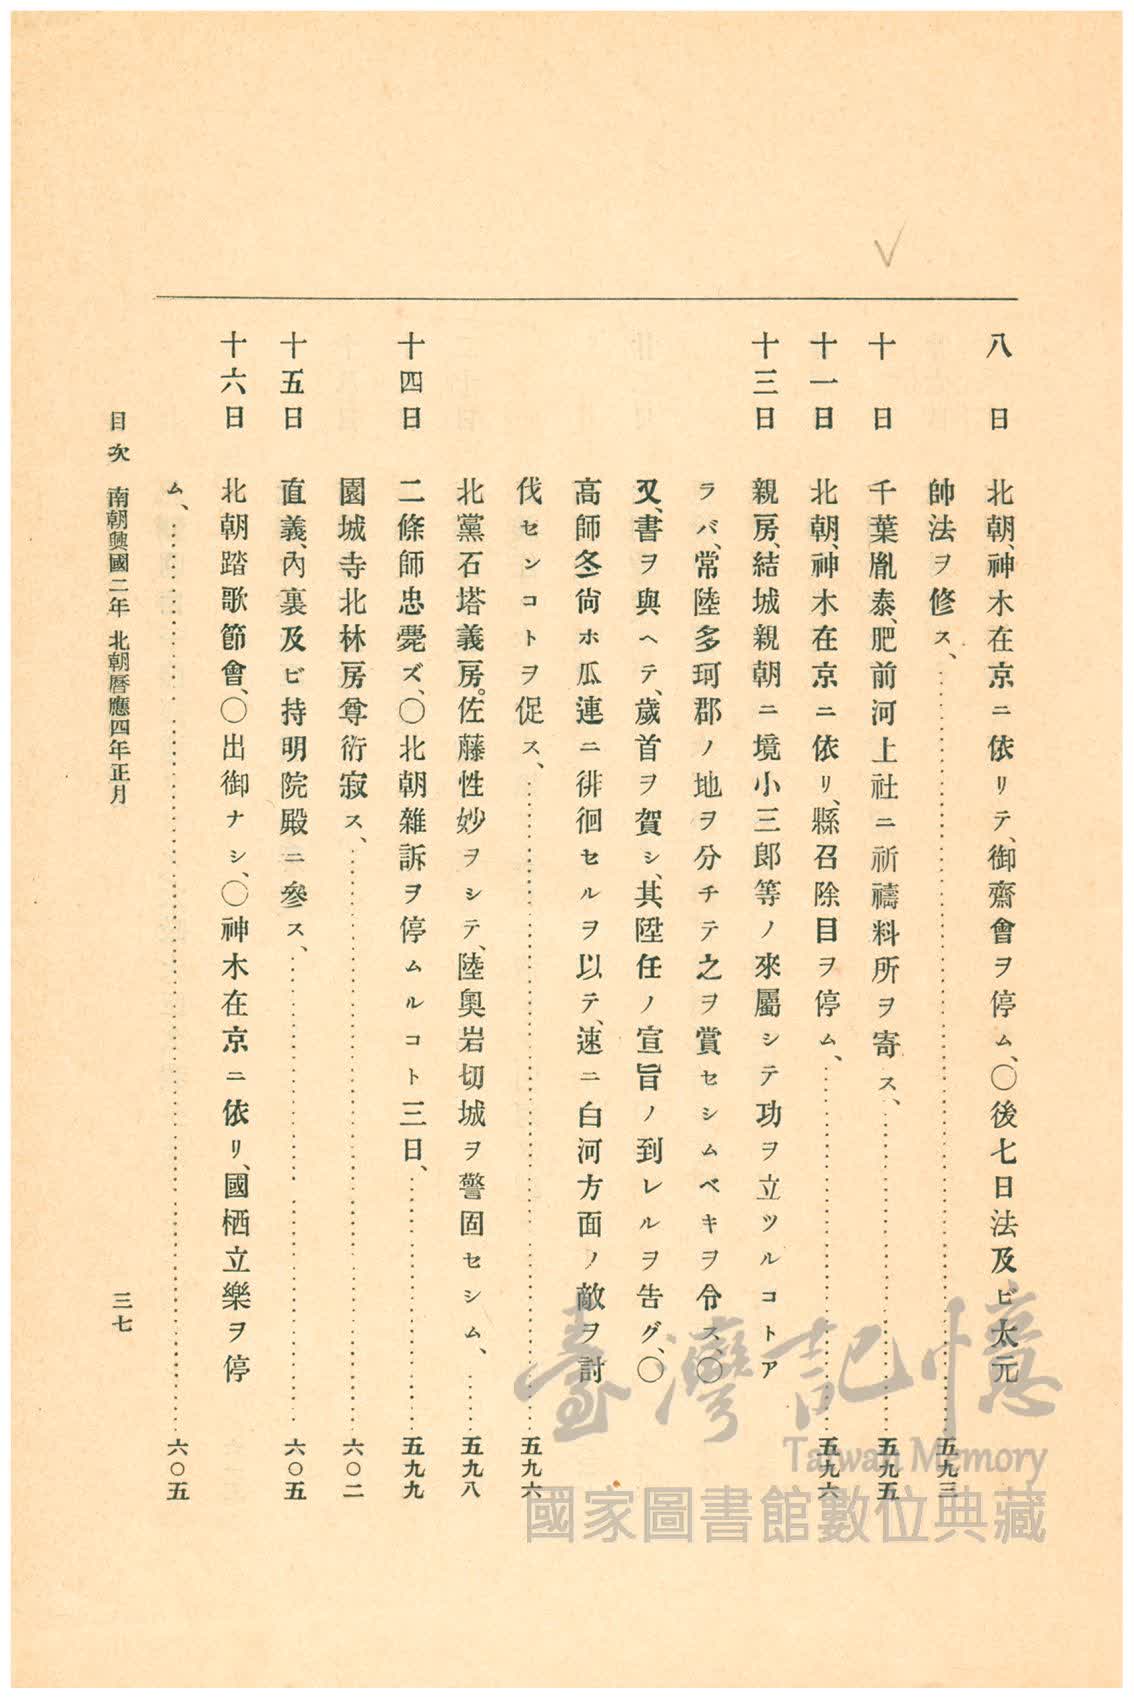 八日　北朝、神木在京ニ依リテ、御齋會ヲ停ム、〇後七日法及ビ太元
帥法ヲ修ス、……五九三
十日　千葉胤泰、肥前河上社ニ祈禱料所ヲ寄ス、……五九五
十一日　北朝、神木在京ニ依リ、縣召除目ヲ停ム、……五九六
十三日　親房、結城親朝ニ境小三郎等ノ來屬シテ功ヲ立ツルコトア
ラバ、常陸多珂郡ノ地ヲ分チテ之ヲ賞セシムベキヲ令ス、〇
又、書ヲ與ヘテ、歲首ヲ賀シ、其陞任ノ宣旨ノ到レルヲ告グ、〇
高師冬尙ホ瓜連ニ徘徊セルヲ以テ、速ニ白河方面ノ敵ヲ討
伐センコトヲ促ス、……五九六
北黨石塔義房、佐藤性妙ヲシテ、陸奧岩切城ヲ警固セシム、……五九八
十四日　二條師忠薨ズ、〇北朝雜訴ヲ停ムルコト三日、……五九九
園城寺北林房尊衍寂ス、……六〇二
十五日　直義、內裏及ビ持明院殿ニ參ス、……六〇五
十六日　北朝踏歌節會、〇出御ナシ、〇神木在京ニ依リ、國栖立樂ヲ停
ム、……六〇五
目次　南朝興國二年 北朝曆應四年正月　三七
臺灣記憶
Taiwan Memory
國家圖書館數位典藏